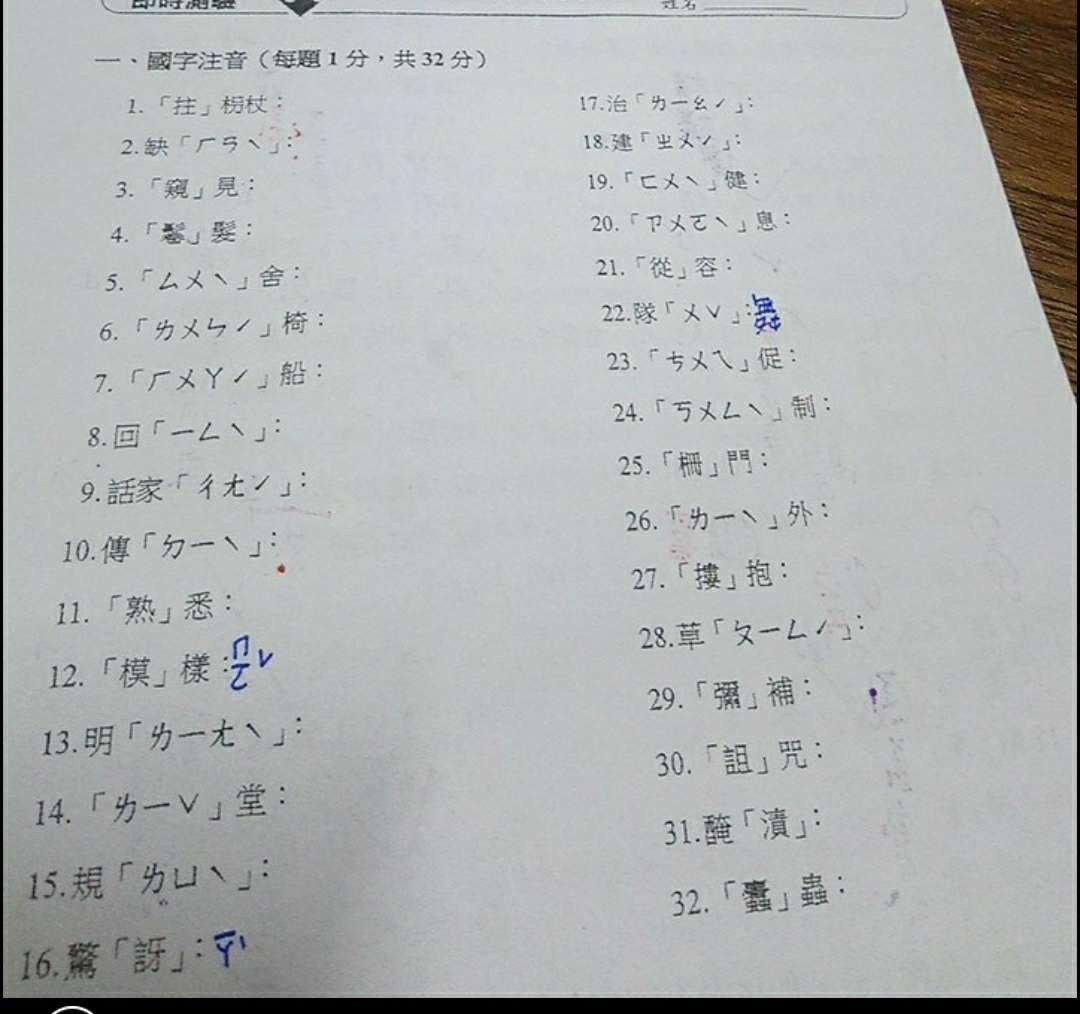 即時測驗
姓名
一、國字注音(每題1分,共32分)
1.「拄」柺杖:
2.缺「ㄏㄢˋ」:
3.「窺」見:
4.「鬈」髮:
5.「ㄙㄨˋ」舍:
6.「ㄌㄨㄣˊ」椅:
7.「ㄏㄨㄚˊ」船:
8.回「ㄧㄥˋ」:
9.話家「ㄔㄤˊ」:
10.傳「ㄉㄧˋ」:
11.「熟」悉:
12.「模」樣:ㄇㄛˊ
13.明「ㄌㄧㄤˋ」:
14.「ㄌㄧˇ」堂:
15.規「ㄌㄩˋ」:
16.驚「訝」:ㄧㄚˋ
17.治「ㄌㄧㄠˊ」:
18.建「ㄓㄨˊ」:
19.「ㄈㄨˋ」健:
20.「ㄗㄨㄛˋ」息:
21.「從」容:
22.隊「ㄨˇ」:
23.「ㄘㄨㄟ」促:
24.「ㄎㄨㄥˋ」制:
25.「柵」門:
26.「ㄌㄧˋ」外:
27.「摟」抱:
28.草「ㄆㄧㄥˊ」:
29.「彌」補:
30.「詛」咒:
31.醃「漬」:
32.「蠹」蟲: